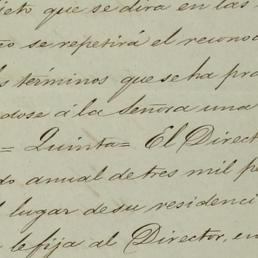 eto que se dira en las
so se repetirá el recono
s términos que se ha pra
dose á la Señora una
= Quinta = El Direct
do anual de tres mil p
l lugar de su residenci
le fija al Director, en